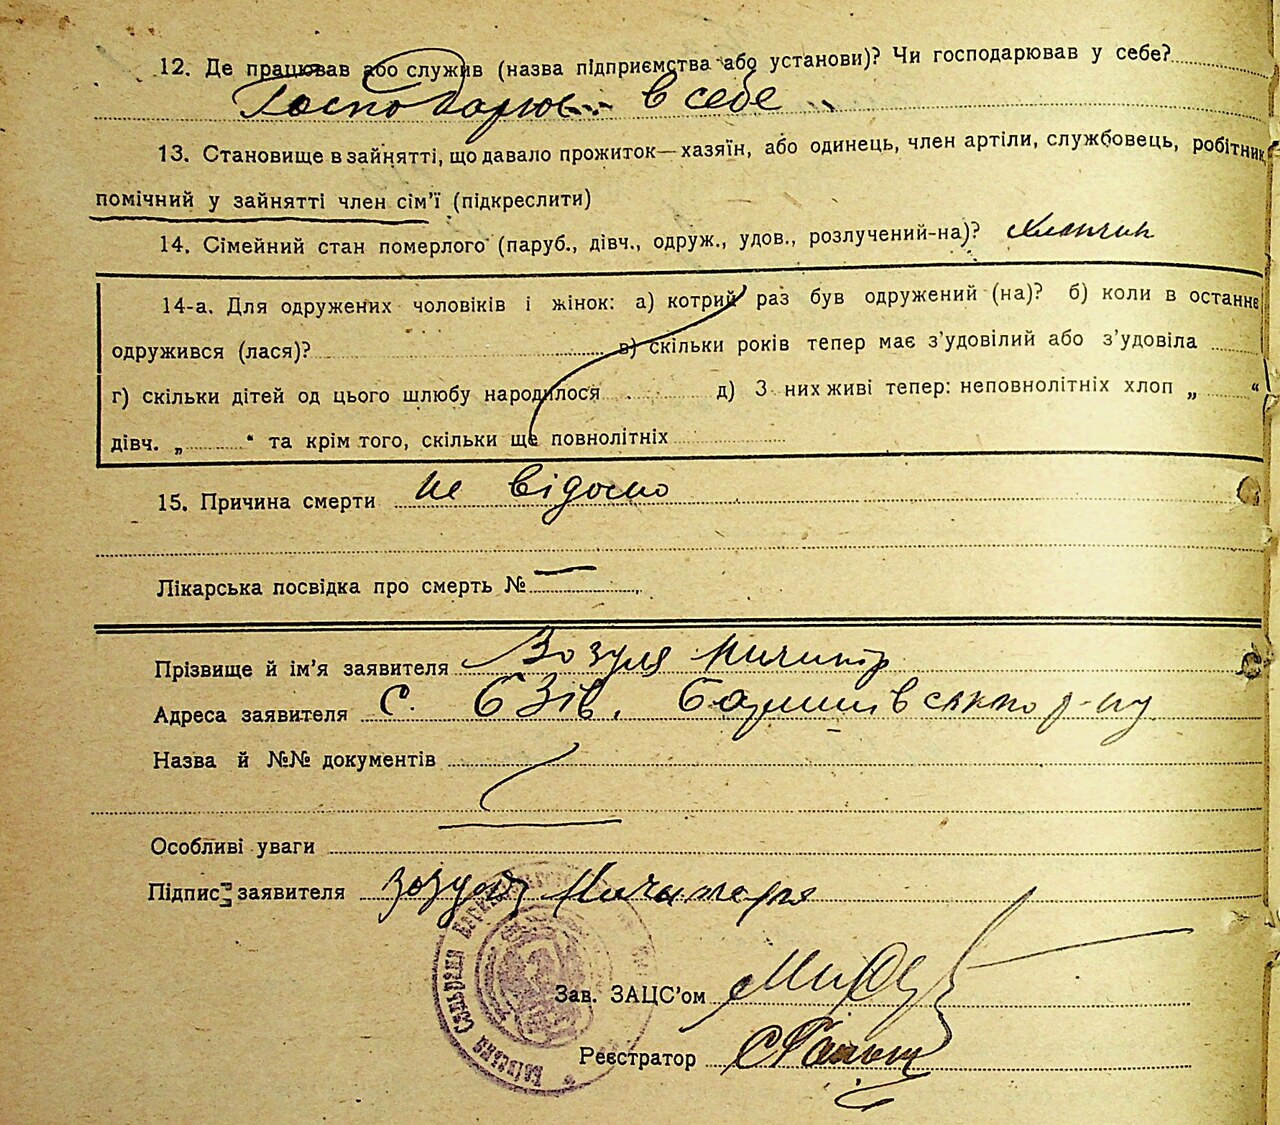 12. Де працював або служив (назва підприємства або установи)? Чи господарював у себе?
Господарює в себе
13. Становище в зайнятті, що давало прожиток—хазяїн, або одинець, член артіли, службовець, робітник
помічний у зайнятті член сім'ї (підкреслити)
14. Сімейний стан померлого (паруб., дівч., одруж., удов., розлучений-на)?
14-а. Для одружених чоловіків і жінок: а) котрий раз був одружений (на)? б) коли в останнє
одружився (лася)? в) скільки років тепер має з'удовілий або з'удовіла
г) скільки дітей од цього шлюбу народилося д) З них живі тепер: неповнолітніх хлоп „ “
дівч. „ “ та крім того, скільки ще повнолітніх
15. Причина смерти не відомо
Лікарська посвідка про смерть № —
Прізвище й ім'я заявителя Зозуля Ничипір
Адреса заявителя с. Єзів, Баришівського р-ну
Назва й №№ документів
Особливі уваги
Підпис заявителя Зозуля
Зав. ЗАЦС'ом
Реєстратор